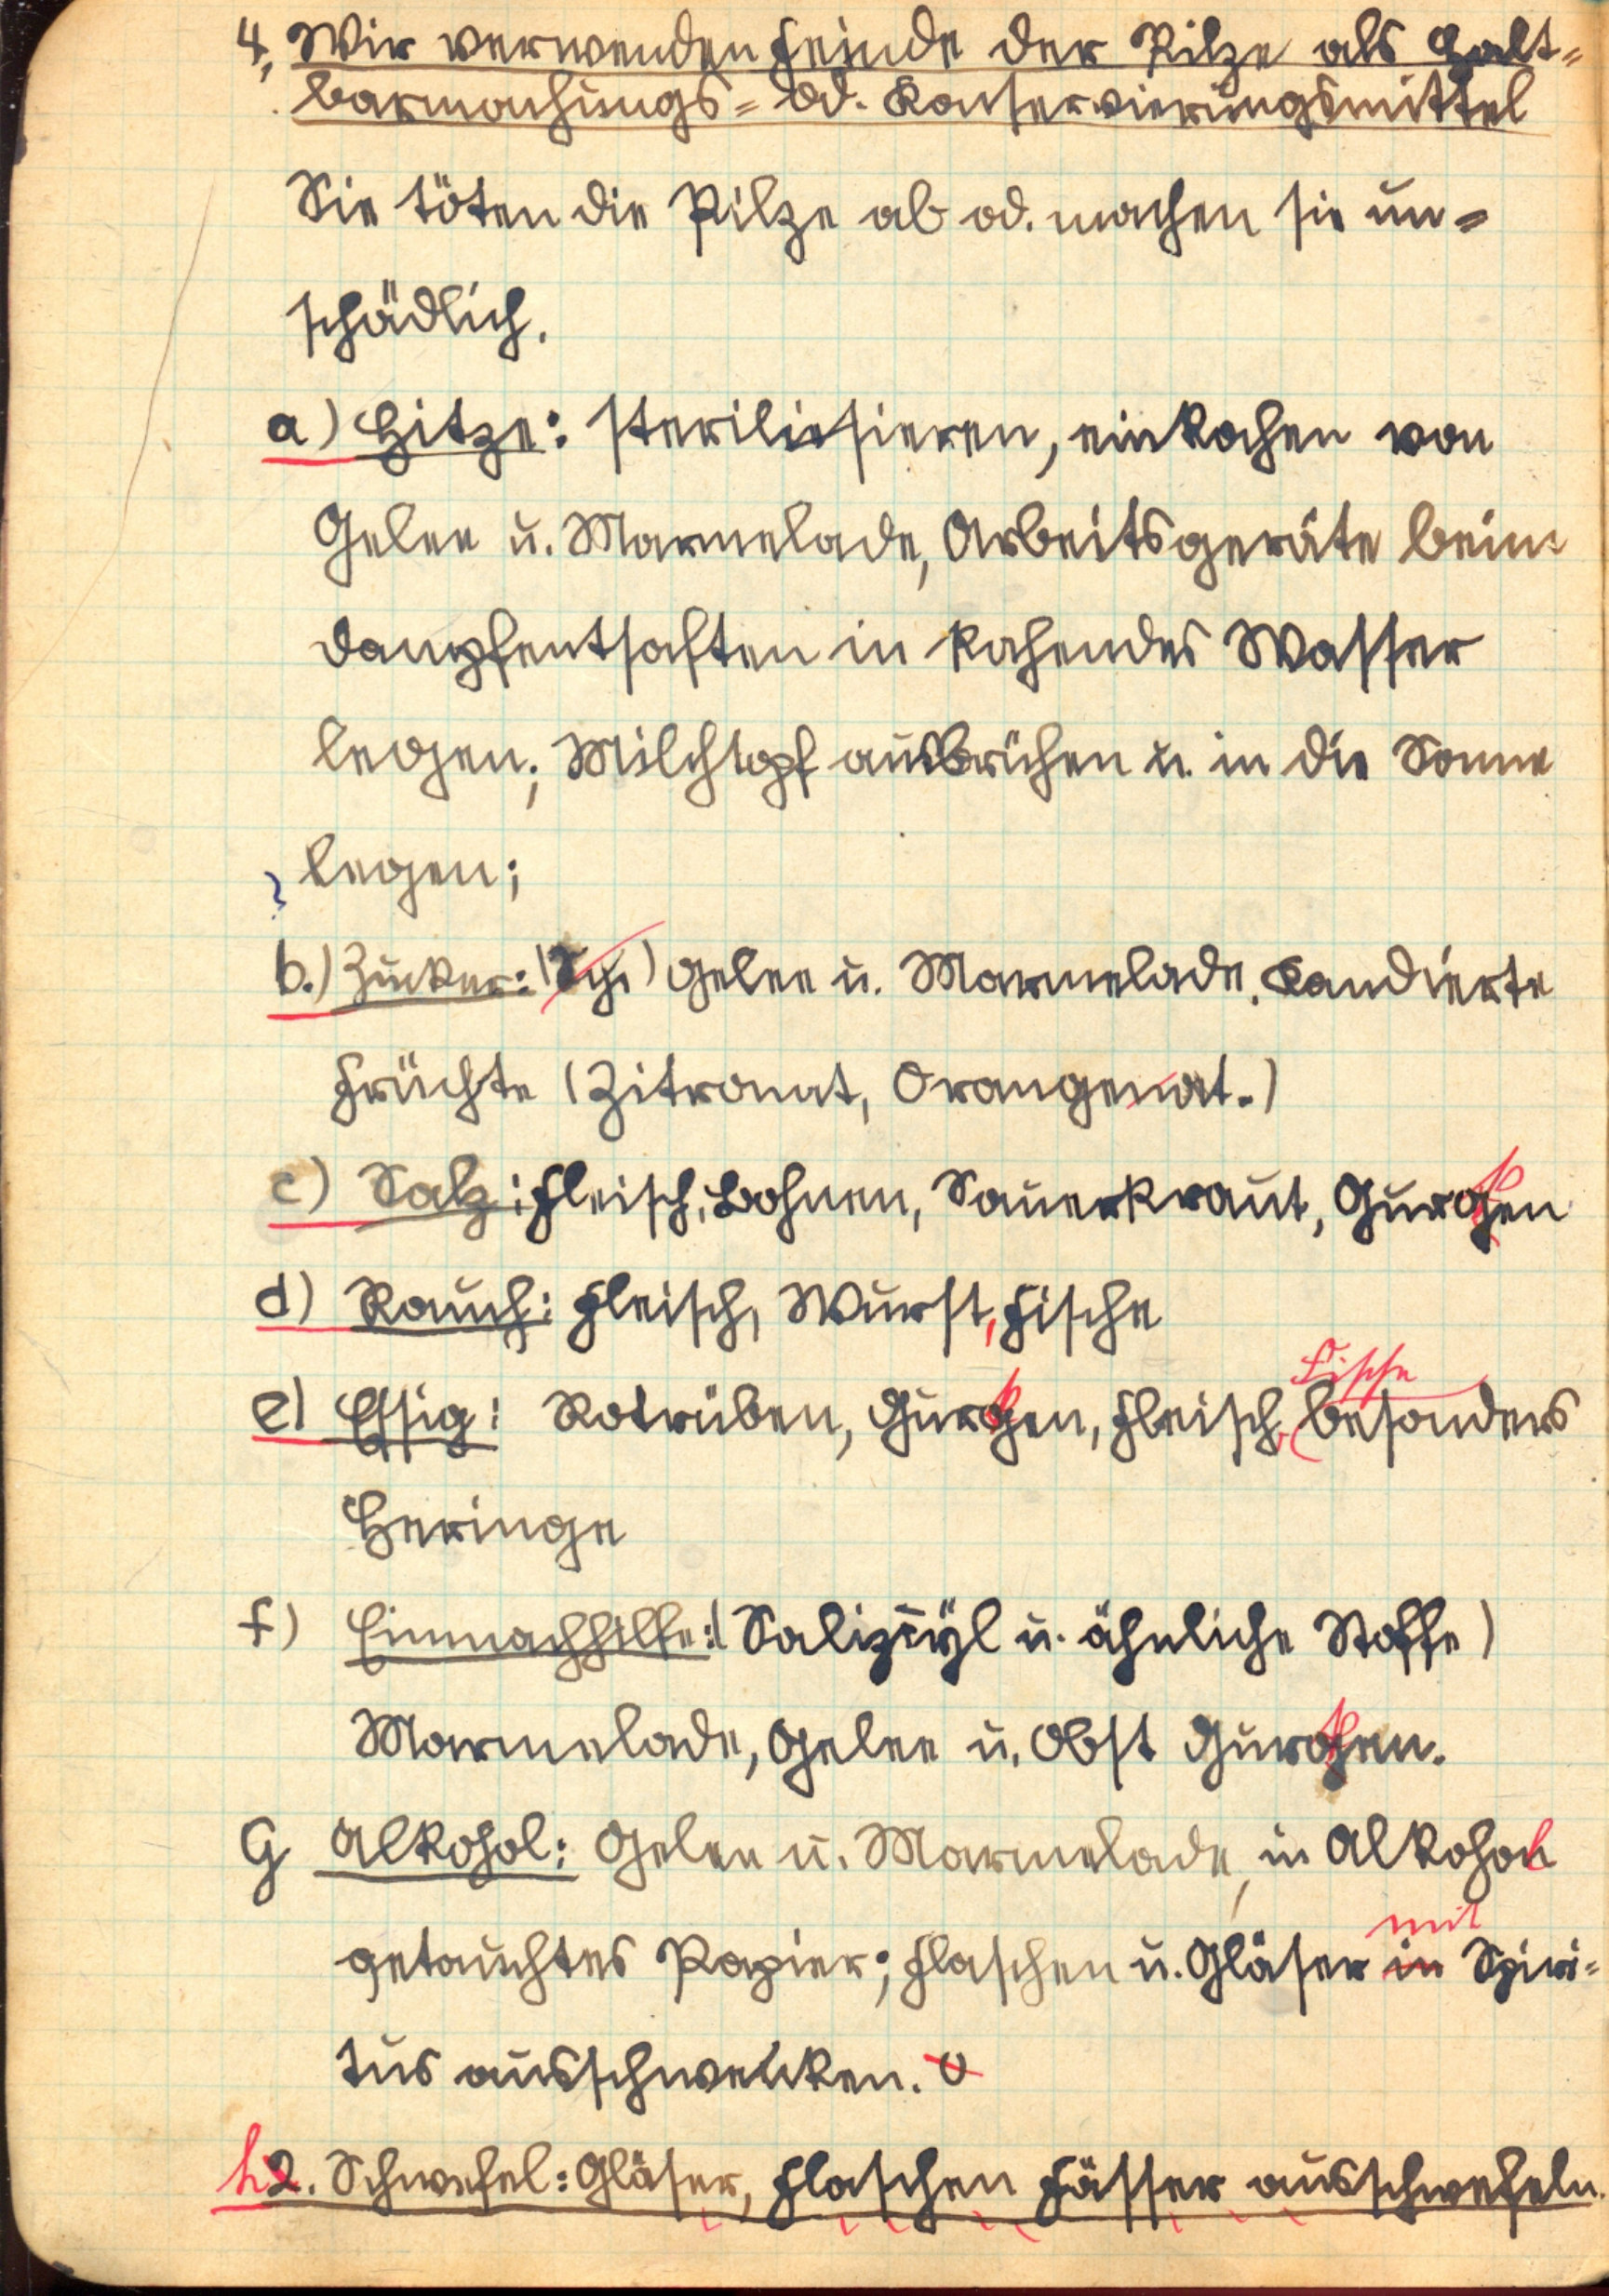 4, Wir verwenden Feinde der Pilze als Halt=
barmachungs= od. Konservierungsmittel
Sie töten die Pilze ab od. machen sie un=
schädlich.
a) Hitze: sterilisieren, einkochen von
Gelee u. Marmelade, Arbeitsgeräte beim
dampfentsaften in kochendes Wasser
legen; Milchtopf ausbrühen u. in die Sonne
legen;
b.) Zucker: Gelee u. Marmelade, Kandierte
Früchte (Zitronat, Orangenat.)
c) Salz: Fleisch, Bohnen, Sauerkraut, Gurken
d) Rauch: Fleisch, Wurst, Fische
Fische
e) Essig: Rotrüben, Gurken, Fleisch, (besonders
Heringe
f) Einmachhilfe: (Salizyl u. ähnliche Stoffe)
Marmelade, Gelee u. Obst Gurken.
G Alkohol: Gelee u. Marmelade, in Alkohol
mit
getauchtes Papier; Flaschen u. Gläser in Spiri=
tus ausschwenken.
h2. Schwefel: Gläser, Flaschen Fässer ausschwefeln.